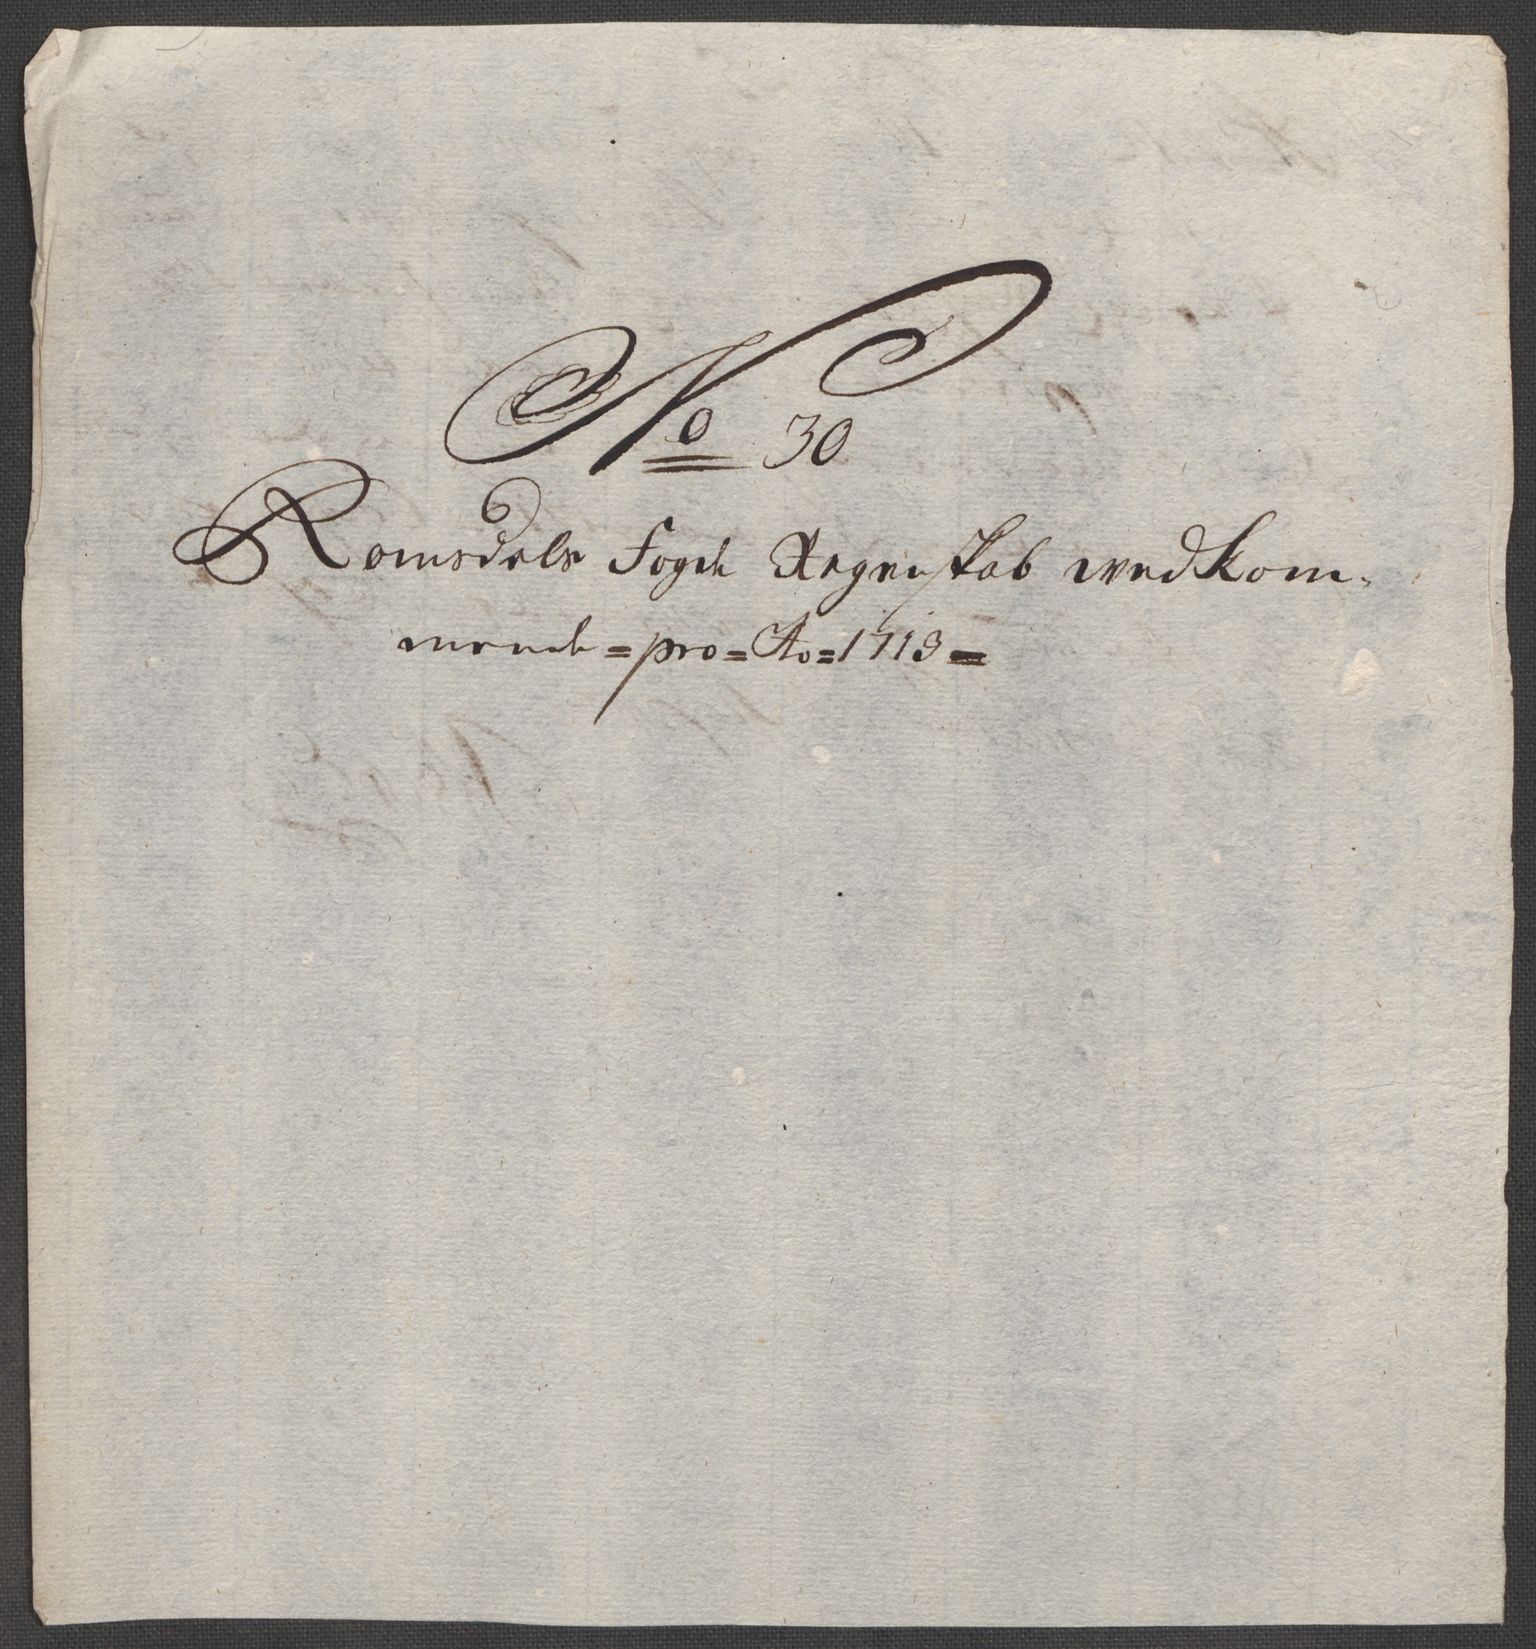 No 30
Romsdals Fogde Regenskab wedkom-
mende = pro = Ao = 1713 =